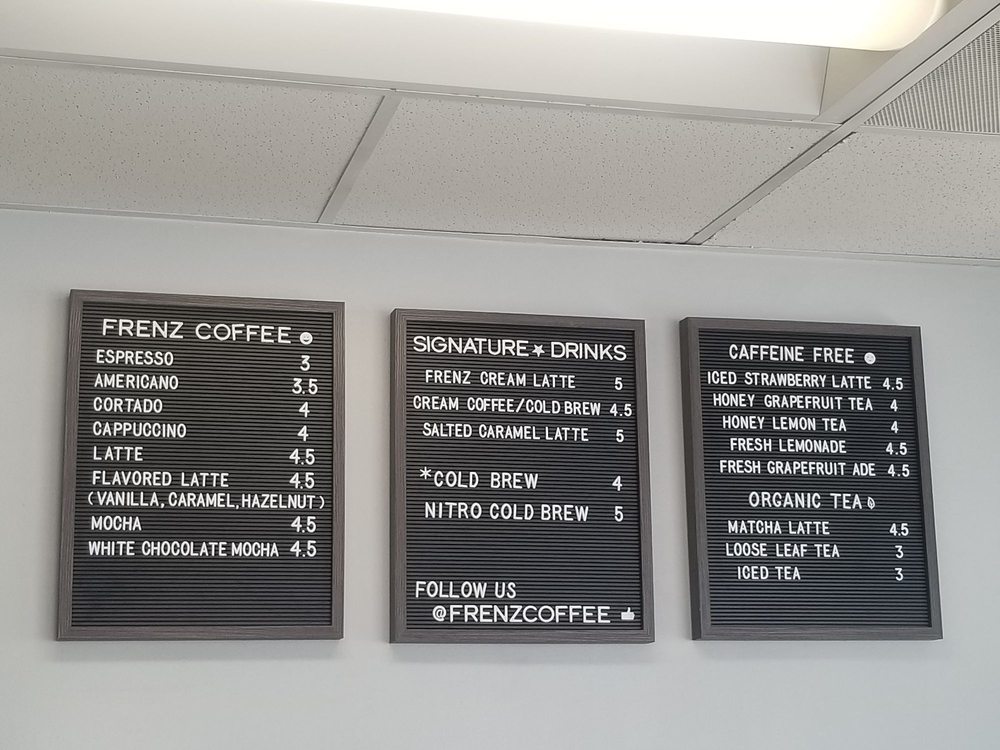 FRENZ COFFEE
ESPRESSO 3
AMERICANO 3.5
CORTADO 4
CAPPUCCINO 4
LATTE 4.5
FLAVORED LATTE 4.5
(VANILLA, CARAMEL, HAZELNUT)
MOCHA 4.5
WHITE CHOCOLATE MOCHA 4.5
SIGNATURE★DRINKS
FRENZ CREAM LATTE 5
CREAM COFFEE/COLD BREW 4.5
SALTED CARAMEL LATTE 5
*COLD BREW 4
NITRO COLD BREW 5
FOLLOW US
@FRENZCOFFEE
CAFFEINE FREE
ICED STRAWBERRY LATTE 4.5
HONEY GRAPEFRUIT TEA 4
HONEY LEMON TEA 4
FRESH LEMONADE 4.5
FRESH GRAPEFRUIT ADE 4.5
ORGANIC TEA
MATCHA LATTE 4.5
LOOSE LEAF TEA 3
ICED TEA 3